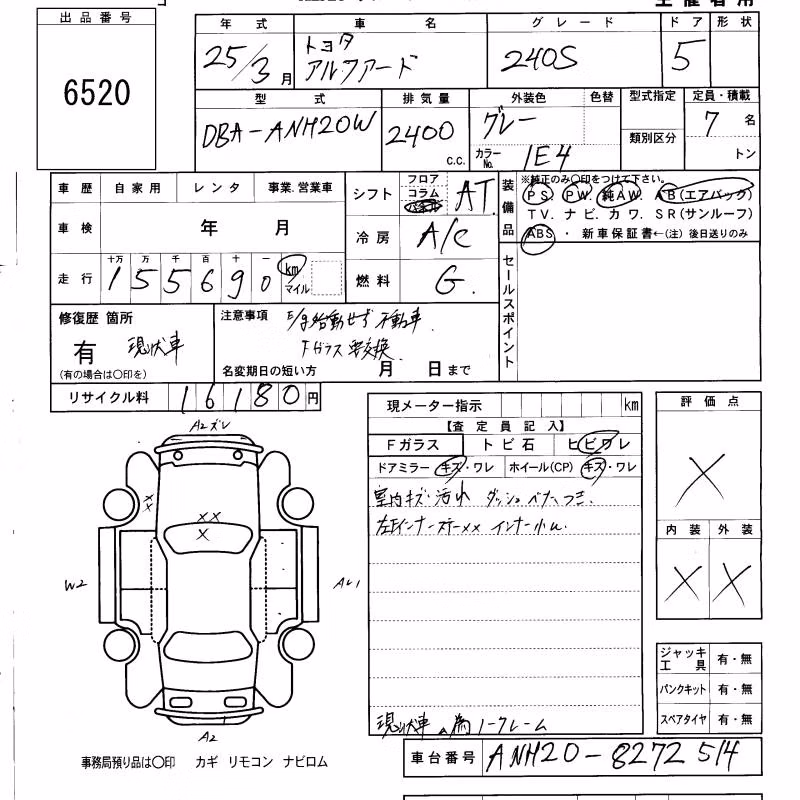 出品番号
6520
年式 車名 グレード ドア 形状
25/3月 トヨタ アルファード 240S 5
型式 排気量 外装色 色替 型式指定 定員・積載
DBA-ANH20W 2400 c.c. グレー カラーNo. 1E4 類別区分 7名 トン
車歴 自家用 レンタ 事業.営業車
シフト フロア コラム AT
装備品 ※純正のみ〇印をつけて下さい。
PS. PW. 純AW. AB(エアバック)
TV. ナビ. カワ. SR(サンルーフ)
ABS ・ 新車保証書←(注)後日送りのみ
車検 年 月
冷房 A/C
走行 十万 万 千 百 十 一
155690 km マイル
燃料 G.
セールスポイント
修復歴 箇所
有 現状車
(有の場合は〇印を)
注意事項 E/g始動せず 不動車
Fガラス要交換
名変期日の短い方 月 日まで
リサイクル料 16180円
現メーター指示 km
【査定員記入】
Fガラス トビ石 ヒビワレ
ドアミラー キズ・ワレ ホイール(CP) キズ・ワレ
室内キズ・汚れ ダッシュベタつき.
現状車の為ノークレーム
評価点
X
内装 外装
X X
A2ズレ
XX
XX
X
W2
A2
ジャッキ工具 有・無
パンクキット 有・無
スペアタイヤ 有・無
事務局預り品は〇印 カギ リモコン ナビロム
車台番号 ANH20-8272514